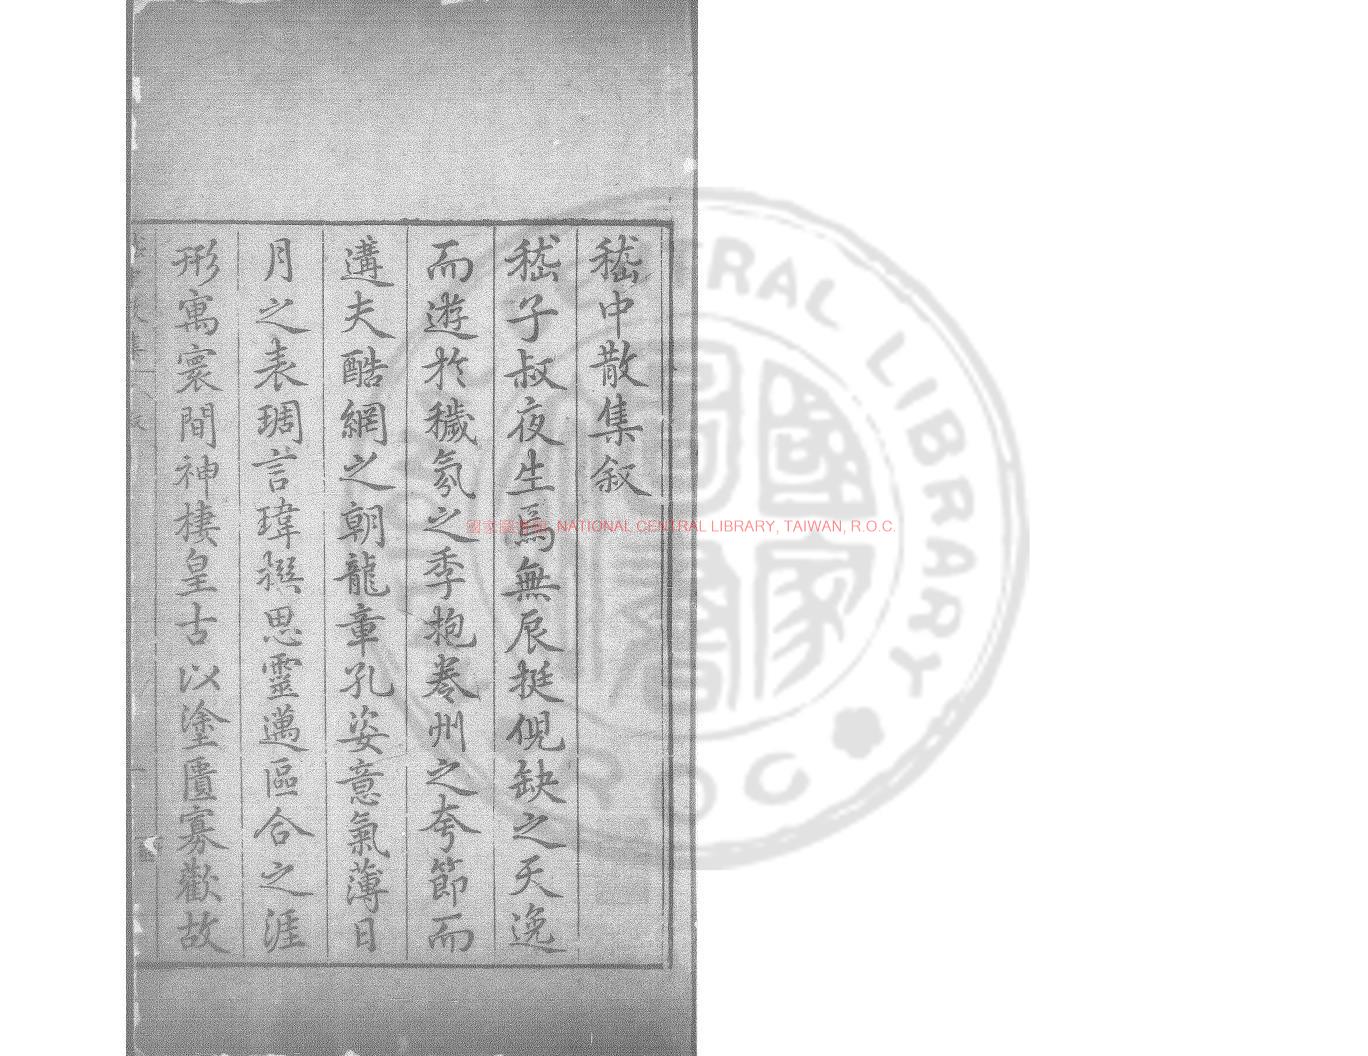 嵇中散集叙
嵇子叔夜生焉無辰挺俔缺之天逸
而遊於穢氛之季抱卷州之夸節而
遘夫酷網之朝龍章孔姿意氣薄日
月之表琱言瑋撰思靈邁區合之涯
形寓寰間神棲皇古以塗匱寡歡故
國家圖書館, NATIONAL CENTRAL LIBRARY, TAIWAN, R.O.C.
CENTRAL LIBRARY
R O C